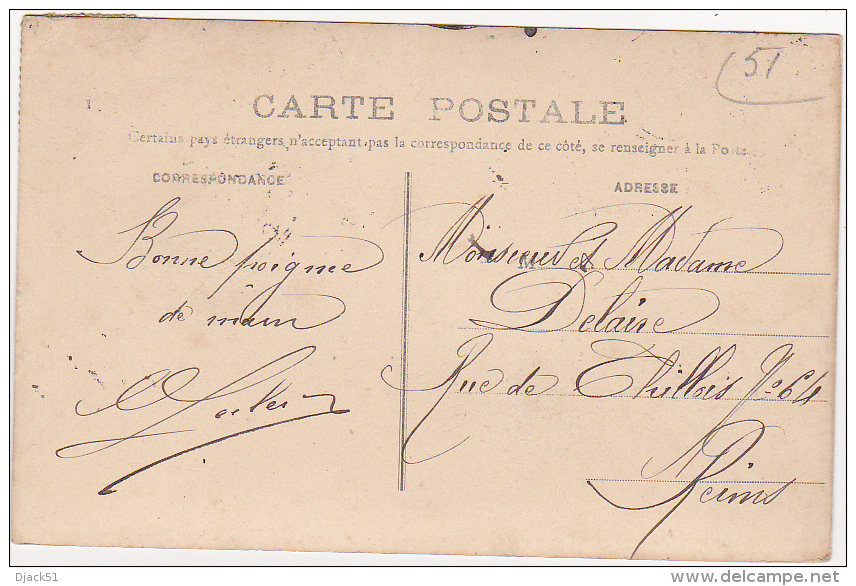 51
1
CARTE POSTALE
Certains pays étrangers n'acceptant pas la correspondance de ce côté, se renseigner à la Poste
CORRESPONDANCE
ADRESSE
Bonne poignée
de main
M
Monsieur et Madame
Delaire
Rue de Thillois No 64
Reims
Djack51
www.delcampe.net